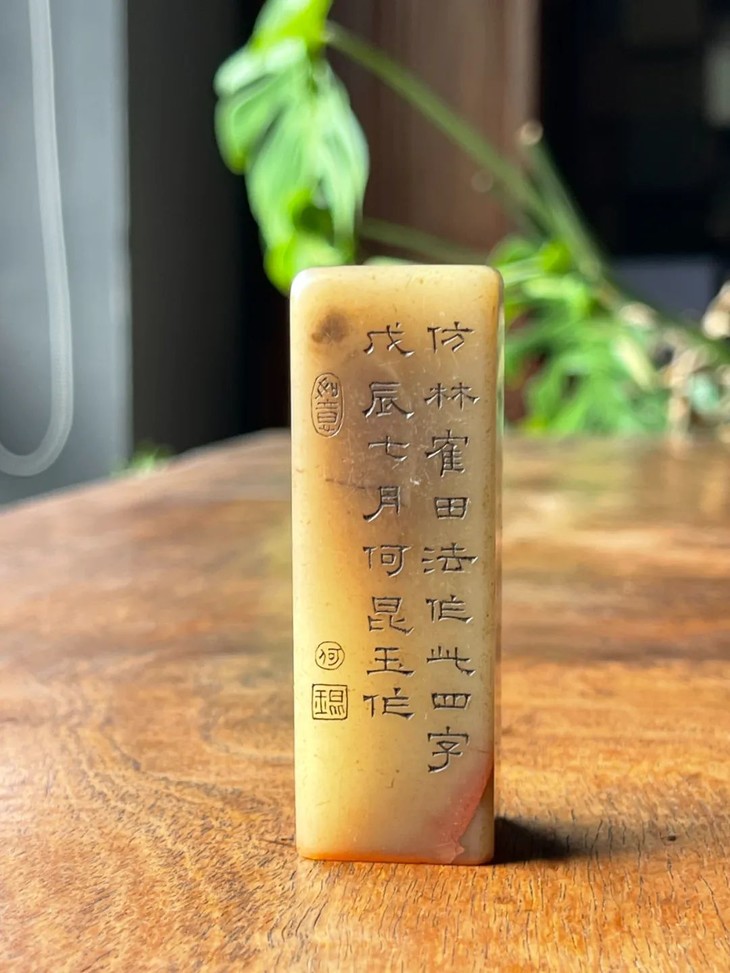 仿林寉田法作此四字
戊辰七月何昆玉作
何